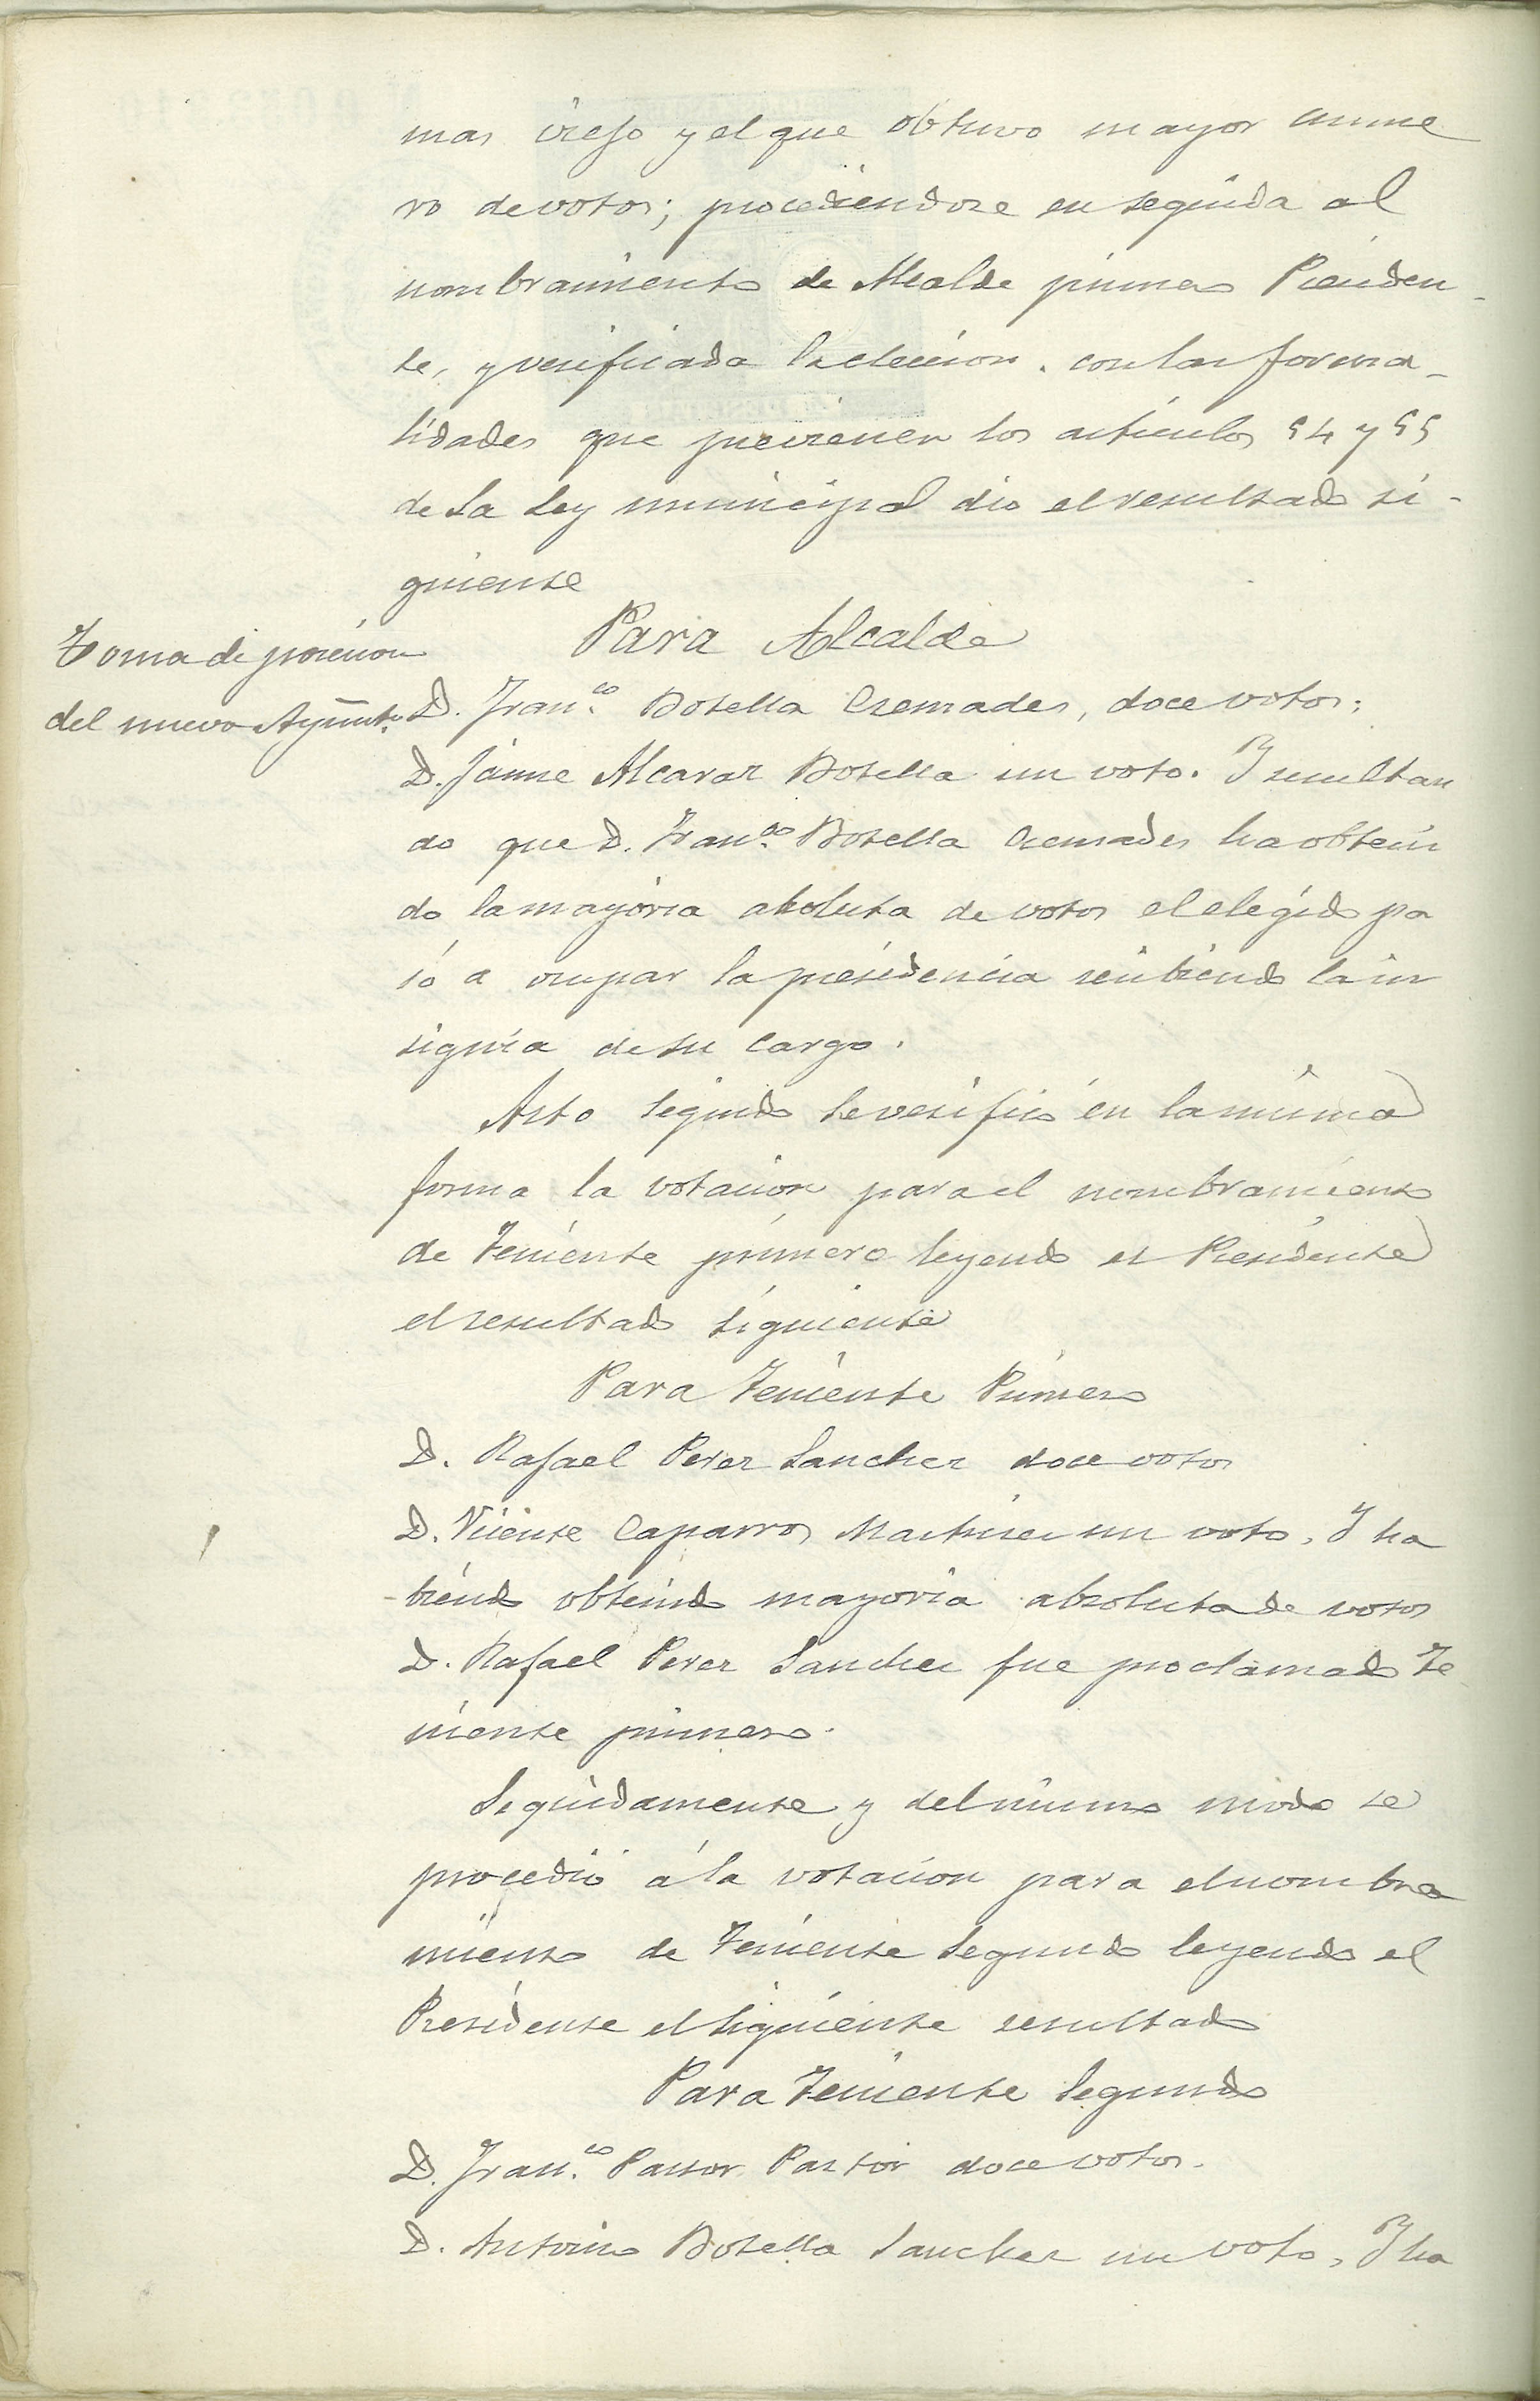 mas viejo y el que obtuvo mayor nume
ro de votos; procediendose en seguida al
nombramiento de Alcalde primero Presiden-
te, y verificada la eleccion con las forma-
lidades que previenen los articulos 54 y 55
de la Ley municipal dio el resultado si-
guiente
Toma de posecion
del nuevo Ayunto.
Para Alcalde
D. Fran.co Botella Cremades, doce votos;
D. Jaime Alcaraz Botella un voto. Y resultan
do que D. Fran.co Botella Cremades ha obteni
do la mayoria absoluta de votos el elegido pa
só a ocupar la presidencia recibiendo la in
signia de su cargo.
Acto seguido se verificó en la misma
forma la votacion para el nombramiento
de Teniente primero leyendo el Presidente
el resultado siguiente
Para Teniente Primero
D. Rafael Perez Sanchez doce votos
D. Vicente Caparros Martinez un voto. Y ha
biendo obtenido mayoria absoluta de votos
D. Rafael Perez Sanchez fue proclamado Te
niente primero.
Seguidamente y del mismo modo se
procedió á la votacion para el nombra
miento de Teniente Segundo leyendo el
Presidente el siguiente resultado
Para Teniente Segundo
D. Fran.co Pastor Pastor doce votos.
D. Antonio Botella Sanchez un voto, Y ha